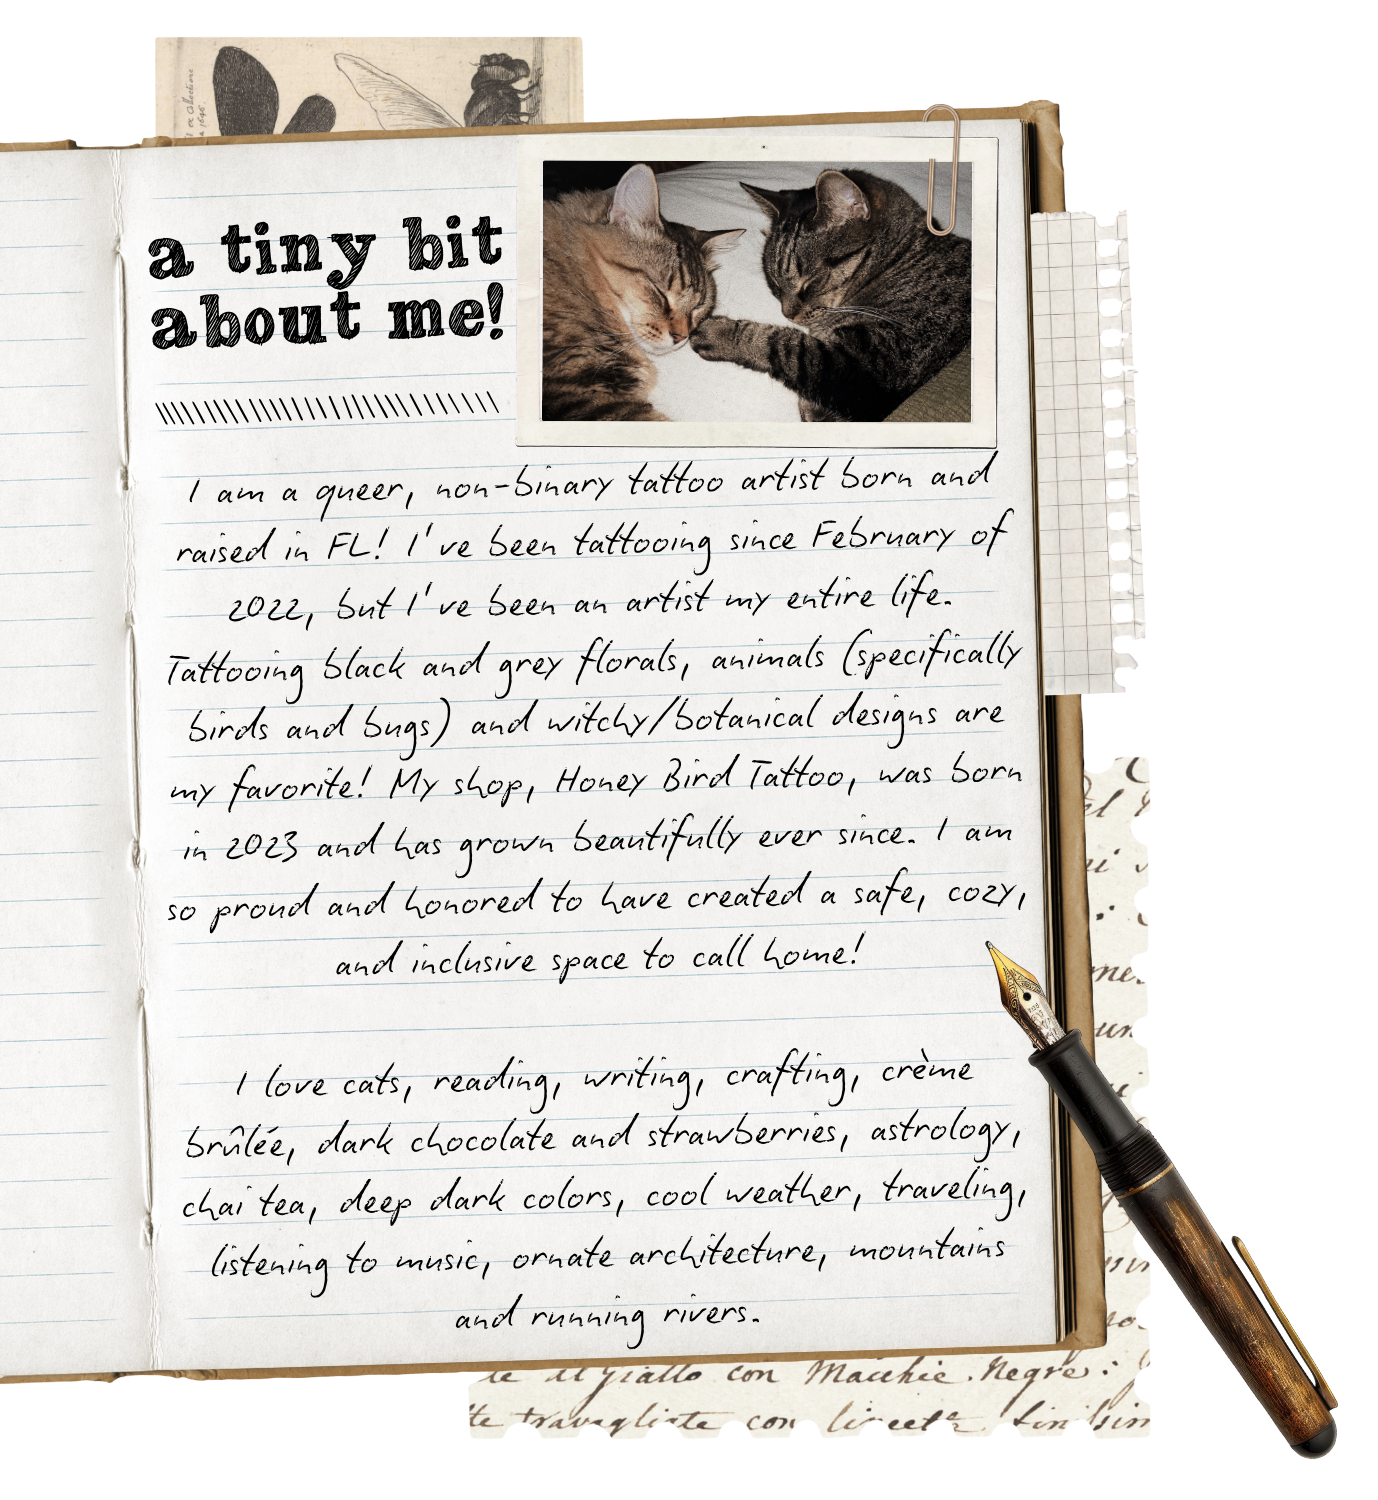 a tiny bit
about me!
I am a queer, non-binary tattoo artist born and
raised in FL! I've been tattooing since February of
2022, but I've been an artist my entire life.
Tattooing black and grey florals, animals (specifically
birds and bugs) and witchy/botanical designs are
my favorite! My shop, Honey Bird Tattoo, was born
in 2023 and has grown beautifully ever since. I am
so proud and honored to have created a safe, cozy,
and inclusive space to call home!
I love cats, reading, writing, crafting, crème
brûlée, dark chocolate and strawberries, astrology,
chai tea, deep dark colors, cool weather, traveling,
listening to music, ornate architecture, mountains
and running rivers.
giallo con Macchie Negre:
con